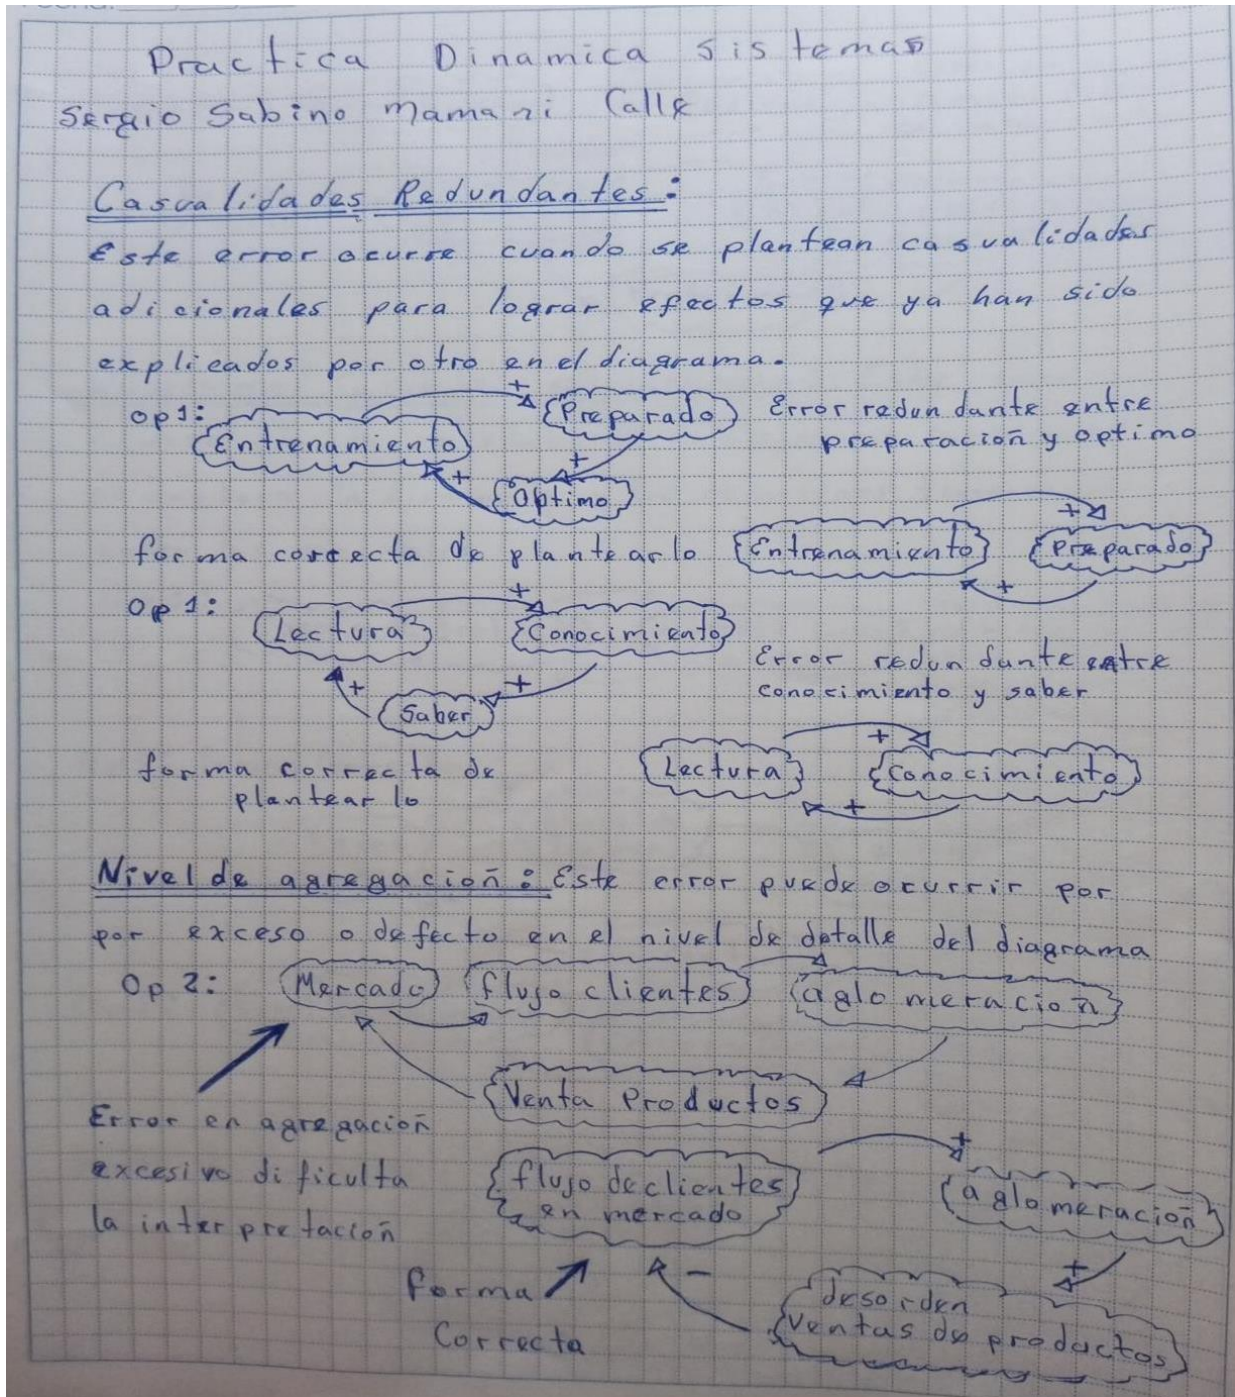 Practica Dinamica sistemas
Sergio Sabino Mamani Calle
Casualidades Redundantes:
Este error ocurre cuando se plantean casualidades
adicionales para lograr efectos que ya han sido
explicados por otro en el diagrama.
Op1: Entrenamiento + Preparado
Error redundante entre
preparación y optimo
+ +
Optimo
forma correcta de plantearlo Entrenamiento + Preparado
+
Op 1: Lectura + Conocimiento
Error redundante entre
conocimiento y saber
+ +
Saber
forma correcta de
plantear lo
Lectura + Conocimiento
+
Nivel de agregación: Este error puede ocurrir por
por exceso o defecto en el nivel de detalle del diagrama
Op 2: Mercado flujo clientes aglomeración
Venta Productos
Error en agregación
excesivo dificulta
la interpretación
flujo de clientes
en mercado
+
aglomeración
+
-
desorden
ventas de productos
forma
Correcta